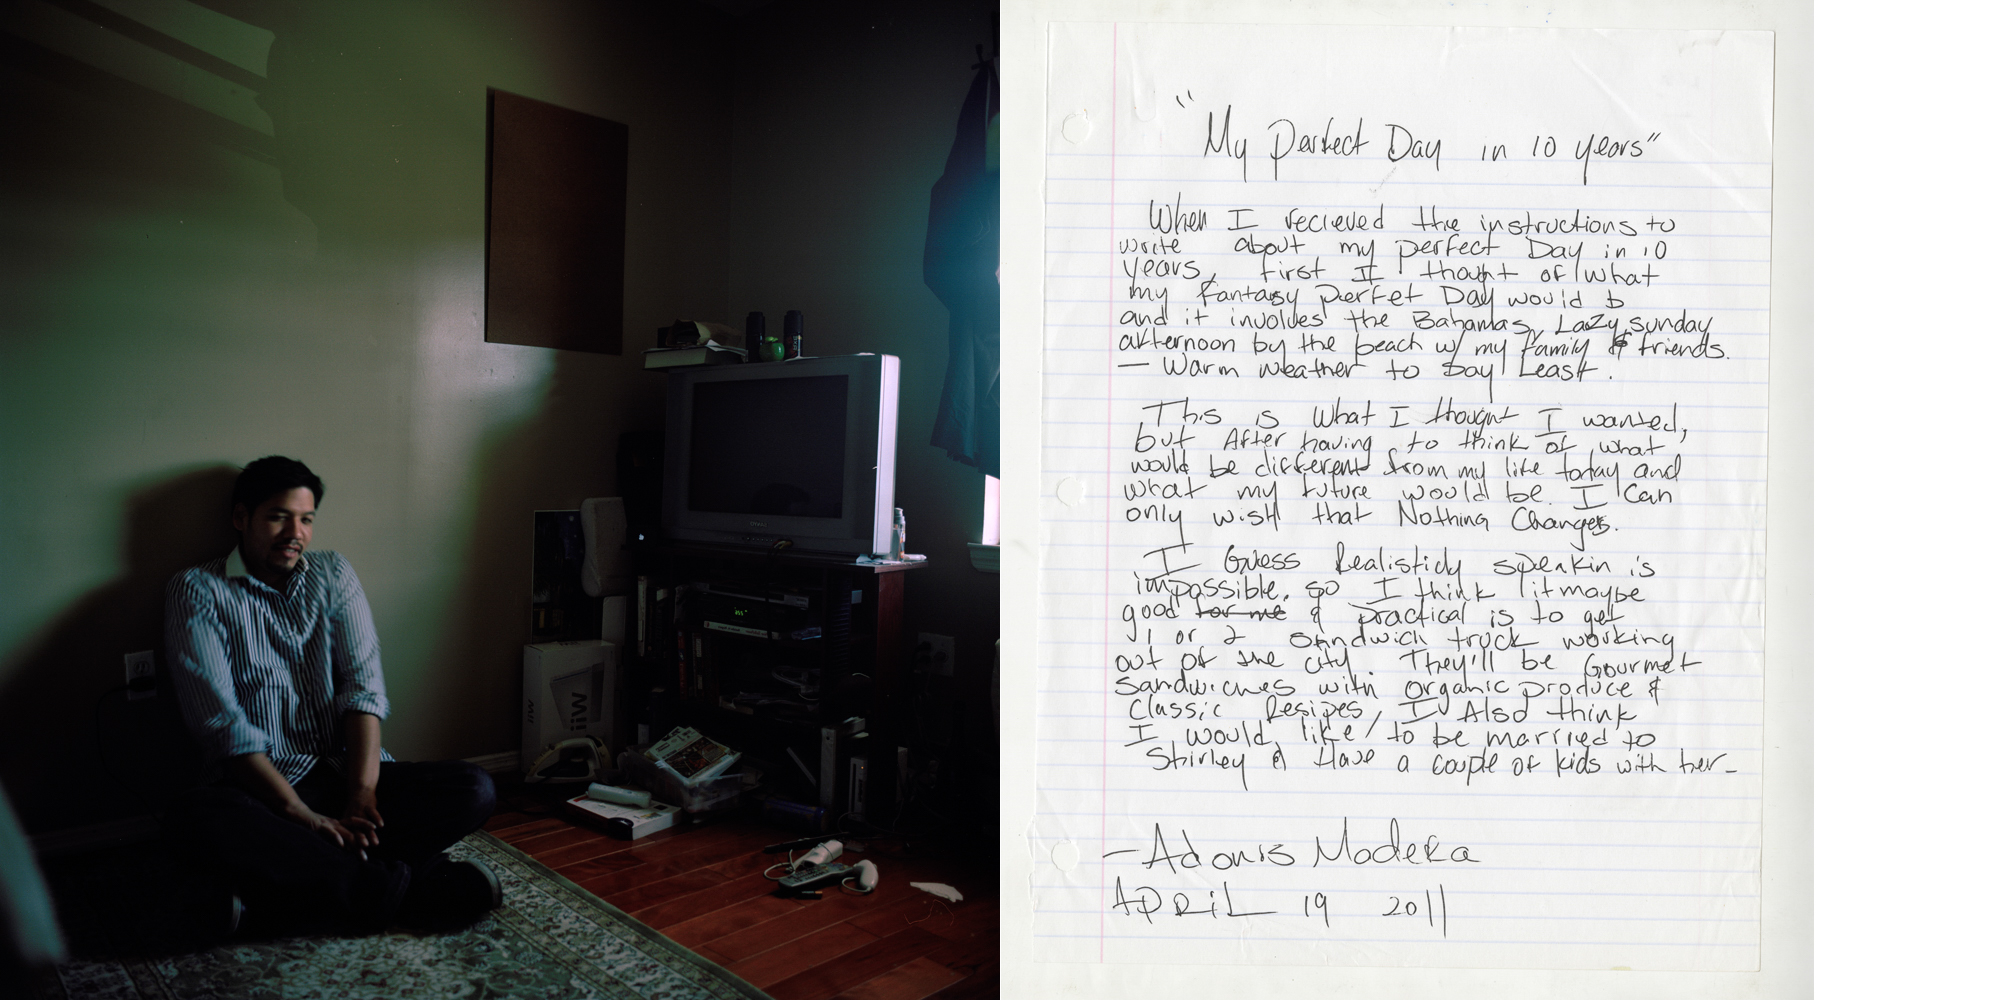 "My Perfect Day in 10 years"
When I recieved the instructions to
write about my perfect Day in 10
years, first I thought of what
my fantasy perfet Day would b
and it involves the Bahamas, Lazy sunday
afternoon by the beach w/ my family & friends.
— Warm weather to Day Least.
This is What I thought I wanted,
but After having to think of what
would be different from my life today and
what my future would be. I Can
only wish that Nothing Changes.
I Guess Realisticly speakin is
impossible, so I think it maybe
good for me & practical is to get
1 or 2 sandwich truck working
out of the city. They'll be Gourmet
Sandwiches with organic produce &
Classic Resipes, I Also think
I would like to be married to
Shirley & Have a couple of kids with her-
-Adonis Modera
APRiL 19 2011
Wii
Wii